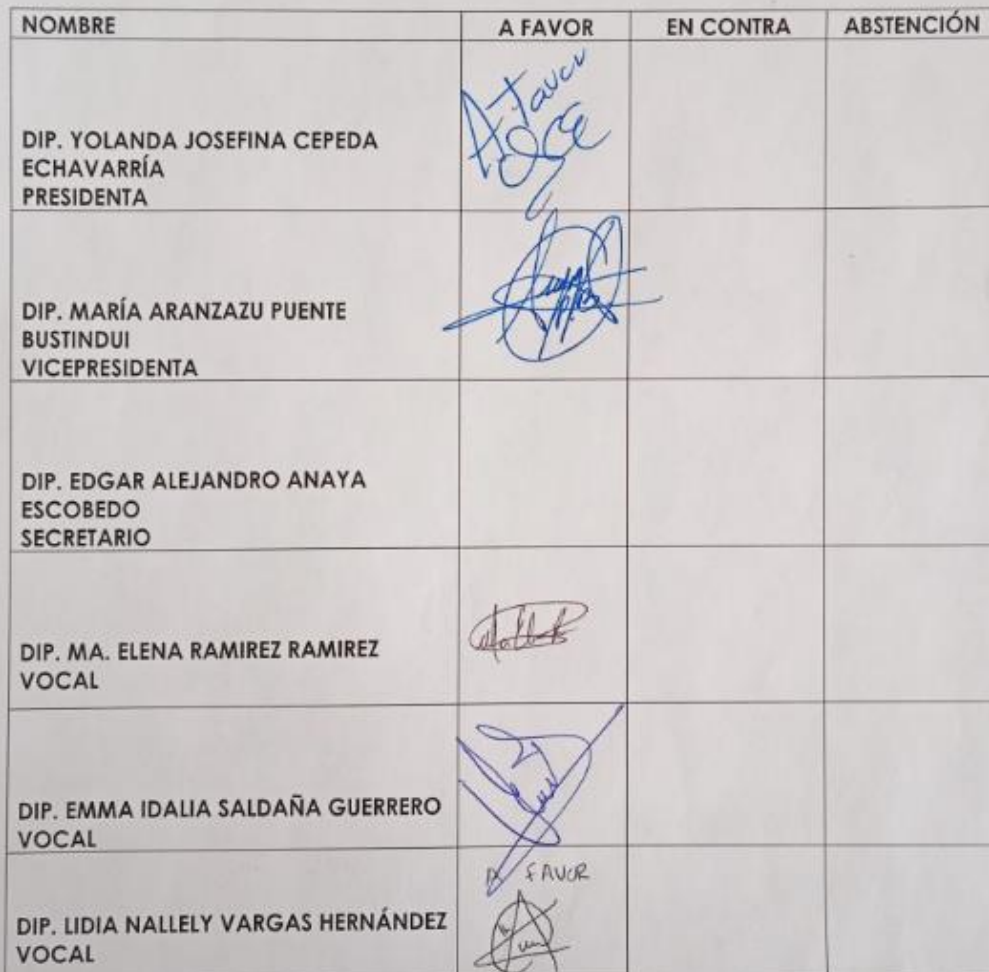 NOMBRE A FAVOR EN CONTRA ABSTENCIÓN
A favor
DIP. YOLANDA JOSEFINA CEPEDA
ECHAVARRÍA
PRESIDENTA
DIP. MARÍA ARANZAZU PUENTE
BUSTINDUI
VICEPRESIDENTA
DIP. EDGAR ALEJANDRO ANAYA
ESCOBEDO
SECRETARIO
DIP. MA. ELENA RAMIREZ RAMIREZ
VOCAL
DIP. EMMA IDALIA SALDAÑA GUERRERO
VOCAL
A FAVOR
DIP. LIDIA NALLELY VARGAS HERNÁNDEZ
VOCAL